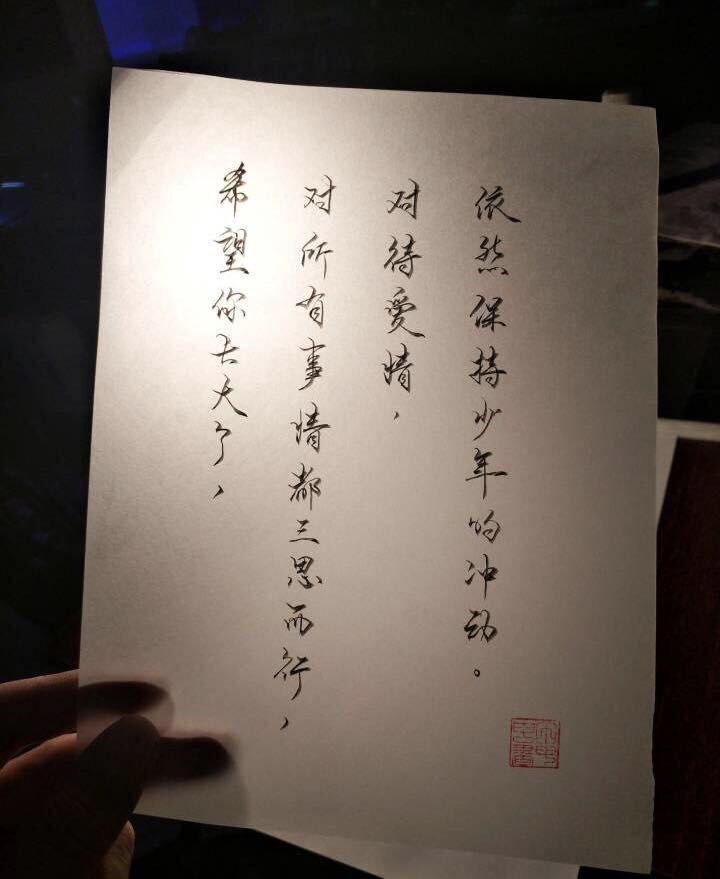 希望你长大了，
对所有事情都三思而行，
对待愛情，
依然保持少年的冲动。